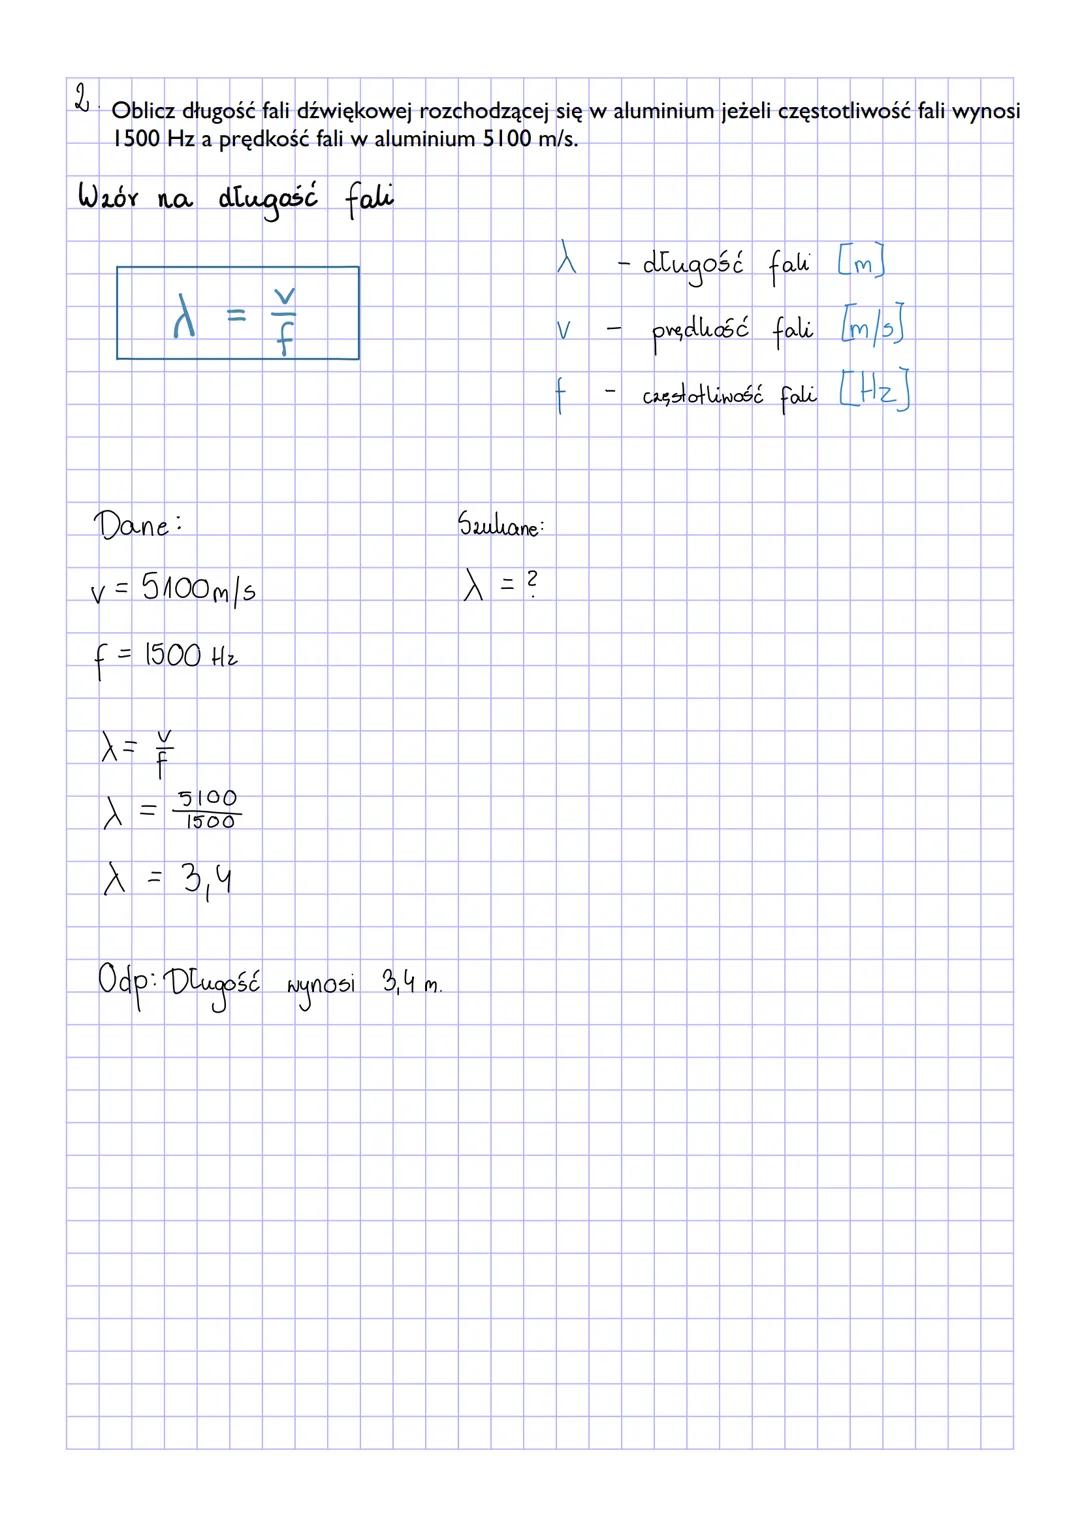 2. Oblicz długość fali dźwiękowej rozchodzącej się w aluminium jeżeli częstotliwość fali wynosi
1500 Hz a prędkość fali w aluminium 5100 m/s.
Wzór na długość fali
λ = v/f
λ - długość fali [m]
v - prędkość fali [m/s]
f - częstotliwość fali [Hz]
Dane:
Szukane:
v = 5100m/s
λ = ?
f = 1500 Hz
λ = v/f
λ = 5100/1500
λ = 3,4
Odp: Długość wynosi 3,4 m.